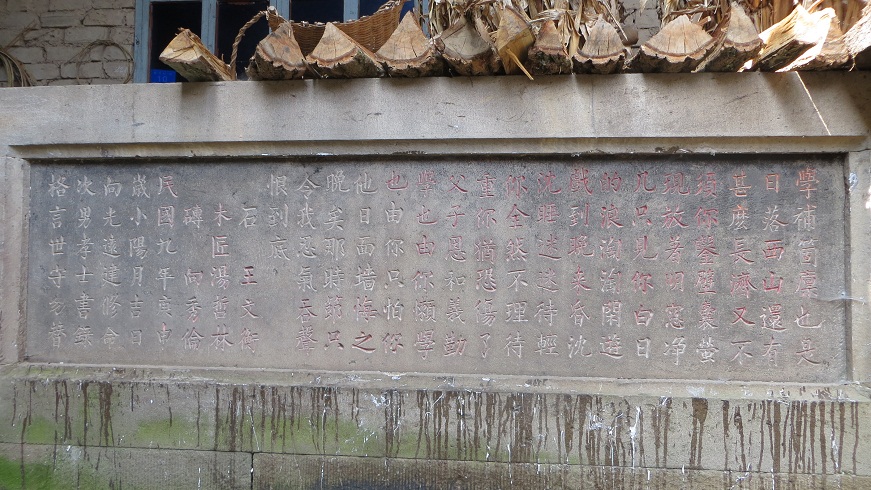 學補箇廪也是
日落西山還有
甚麽長濟又不
須你鑿壁囊螢
現放着明窓净
几只見你白日
的浪淘淘閑遊
戲到晚来昏沈
沈睡迷迷待輕
你全然不理待
重你猶恐傷了
父子恩和義勤
學也由你懶學
也由你只怕你
他日面墙悔之
晚矣那時莭只
令我忍氣吞聲
恨到底
石 王文衡
木匠湯哲林
磚 向秀倫
民國九年庚申
歲小陽月吉日
向光遠建修命
次男孝士書錄
格言世守勿替